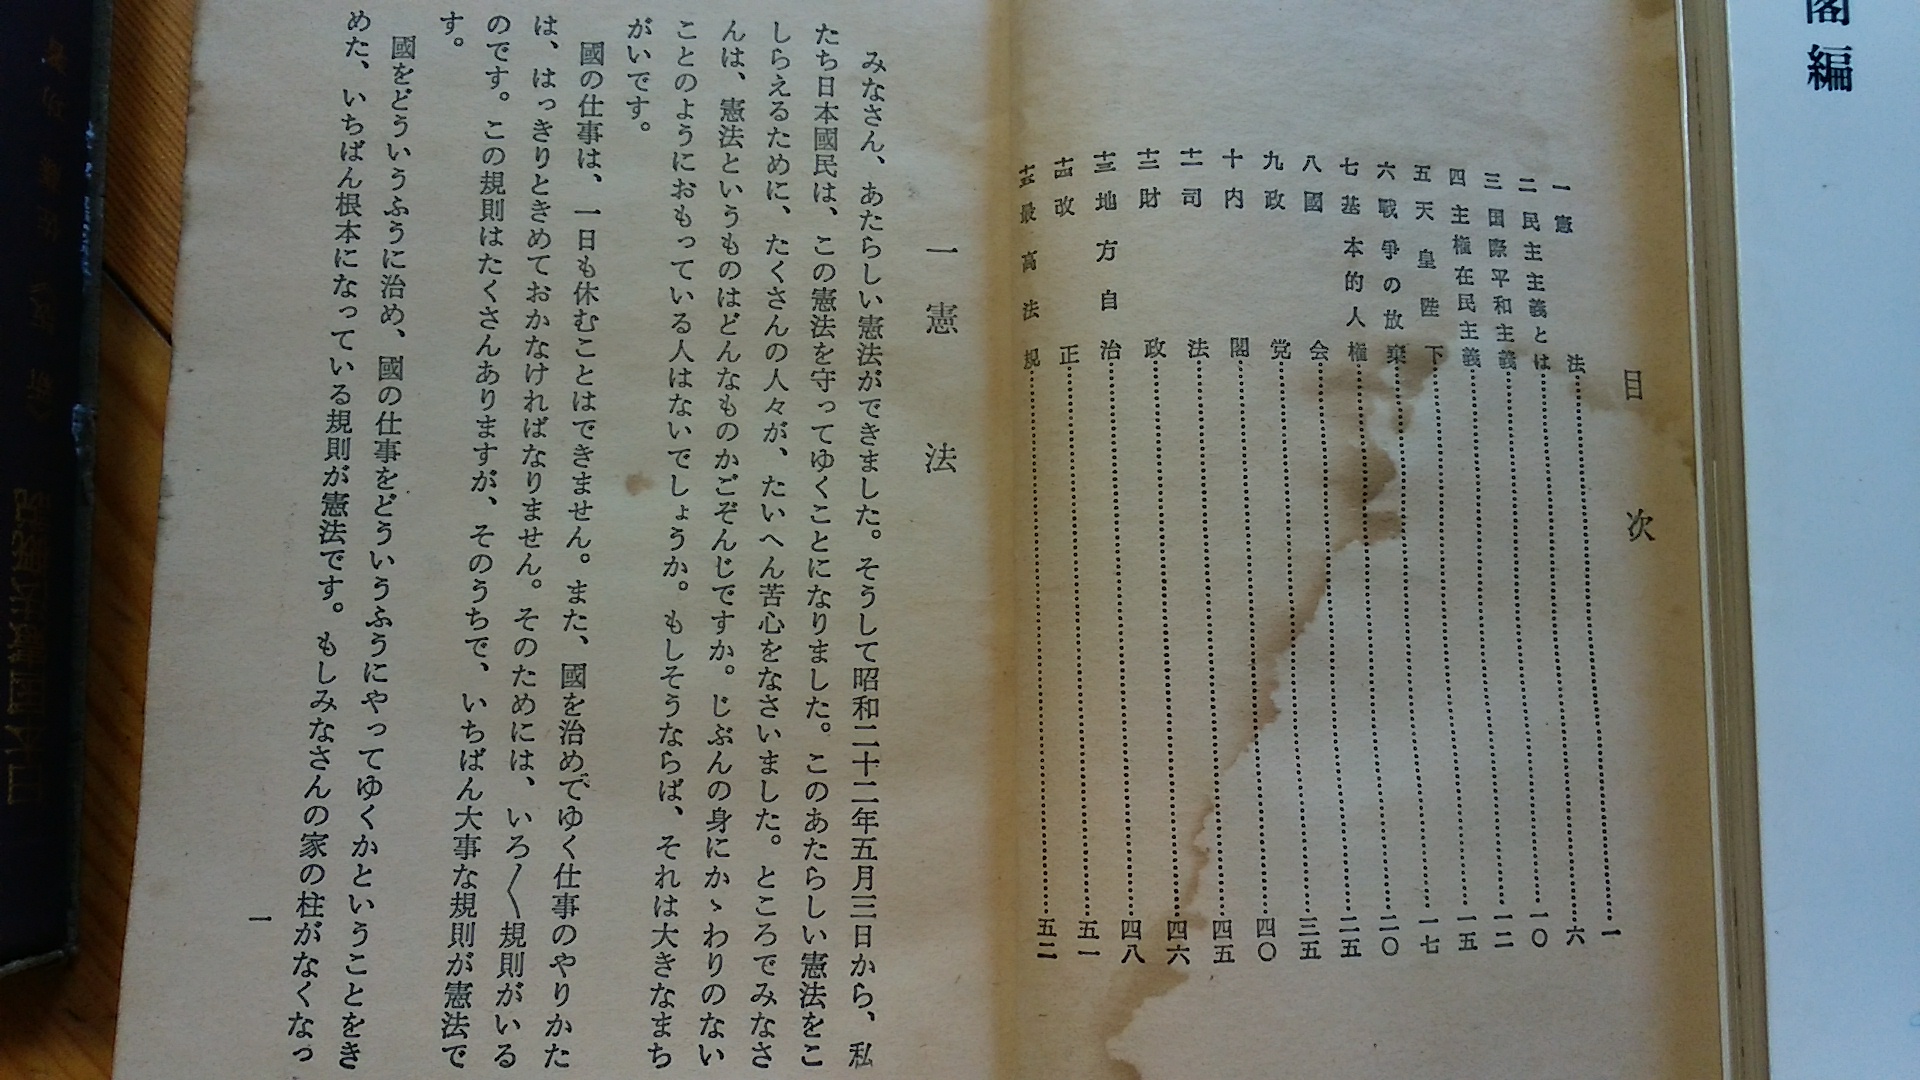 閣編
目次
一 憲法……一
二 民主主義とは……六
三 国際平和主義……一〇
四 主権在民主義……一二
五 天皇陛下……一五
六 戰爭の放棄……一七
七 基本的人権……二〇
八 國会……二五
九 政党……三五
十 内閣……四〇
十一 司法……四五
十二 財政……四六
十三 地方自治……四八
十四 改正……五一
十五 最高法規……五二
一 憲法
みなさん、あたらしい憲法ができました。そうして昭和二十二年五月三日から、私
たち日本國民は、この憲法を守ってゆくことになりました。このあたらしい憲法をこ
しらえるために、たくさんの人々が、たいへん苦心をなさいました。ところでみなさ
んは、憲法というものはどんなものかごぞんじですか。じぶんの身にかゝわりのない
ことのようにおもっている人はないでしょうか。もしそうならば、それは大きなまち
がいです。
國の仕事は、一日も休むことはできません。また、國を治めてゆく仕事のやりかた
は、はっきりときめておかなければなりません。そのためには、いろ〳〵規則がいる
のです。この規則はたくさんありますが、そのうちで、いちばん大事な規則が憲法で
す。
國をどういうふうに治め、國の仕事をどういうふうにやってゆくかということをき
めた、いちばん根本になっている規則が憲法です。もしみなさんの家の柱がなくなっ
一